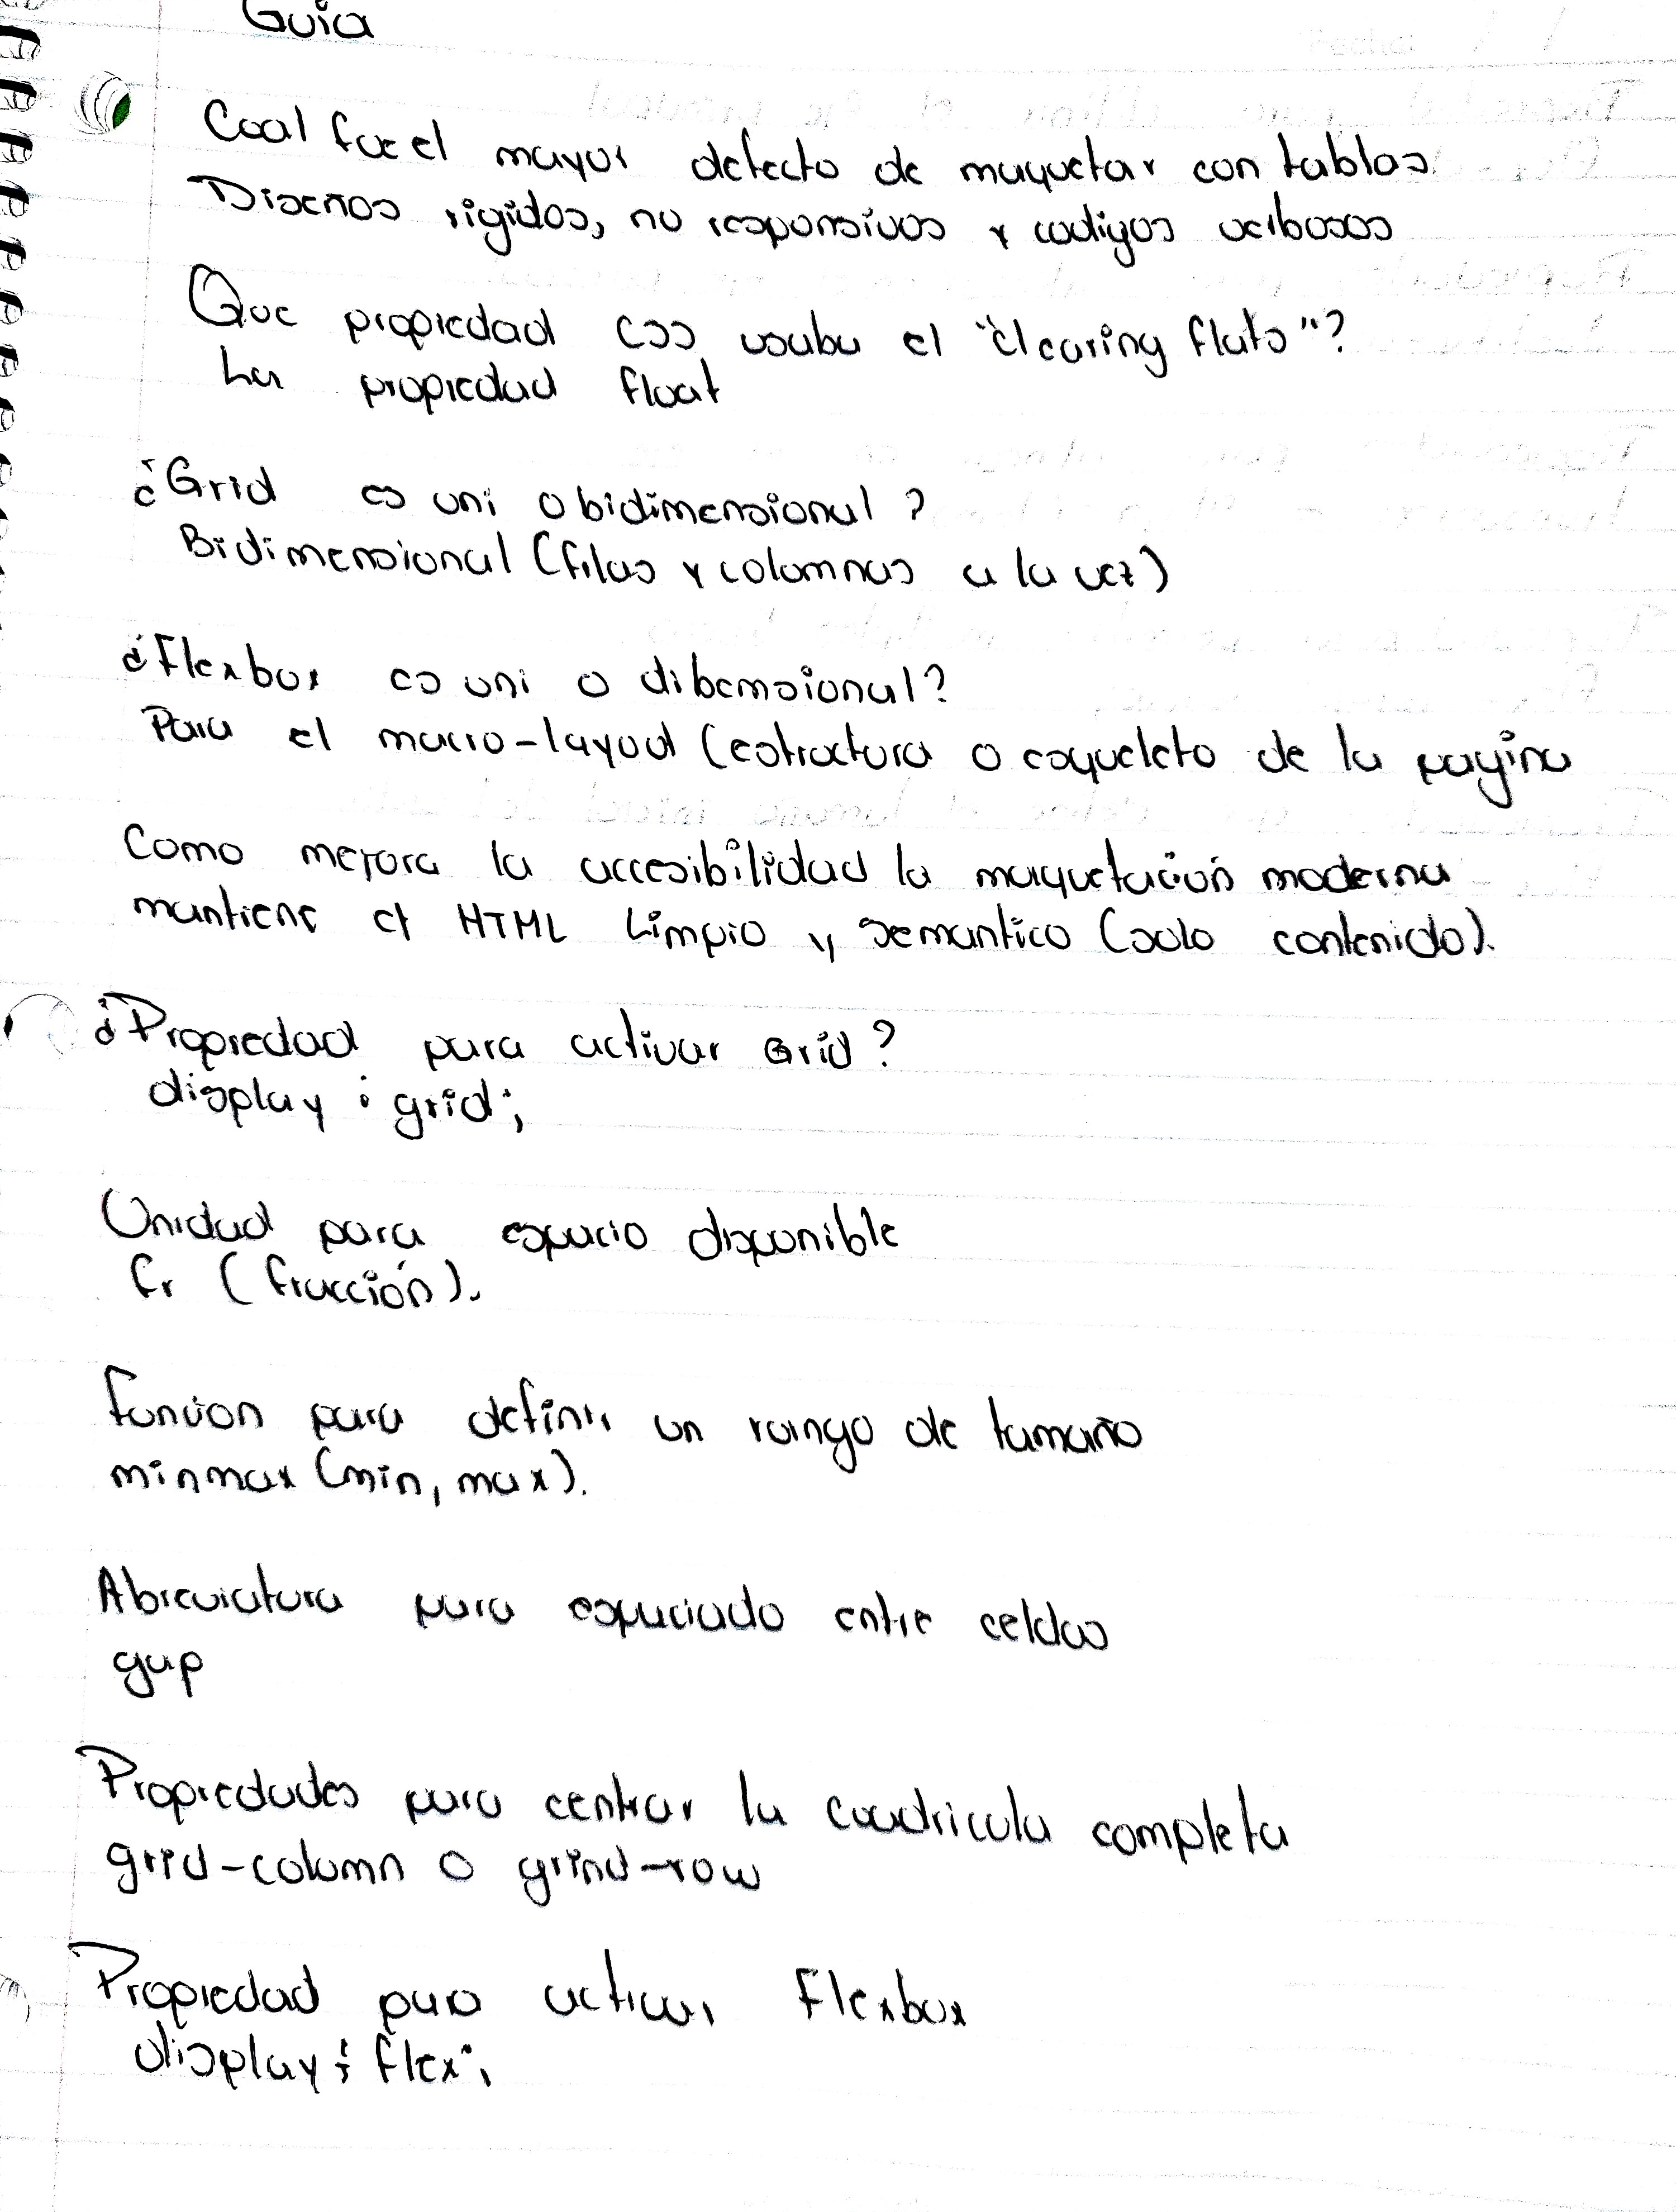 Guia
Cual fue el mayor defecto de maquetar con tablas
Diseños rigidos, no responsivos y codigos verbosos
Que propiedad CSS usaba el "clearing flats"?
La propiedad float
¿Grid es uni o bidimensional?
Bidimensional (filas y columnas a la vez)
¿Flexbox es uni o dibemsional?
Para el macro-layout (estructura o esqueleto de la pagina
Como mejora la accesibilidad la maquetación moderna
mantiene el HTML Limpio y semantico (solo contenido).
¿Propiedad para activar Grid?
display: grid;
Unidad para espacio disponible
fr (fracción).
Funcion para definir un rango de tamaño
minmax (min, max).
Abreviatura para espaciado entre celdas
gap
Propiedades para centrar la cuadricula completa
grid-column o grind-row
Propiedad para activar Flexbox
display: flex;